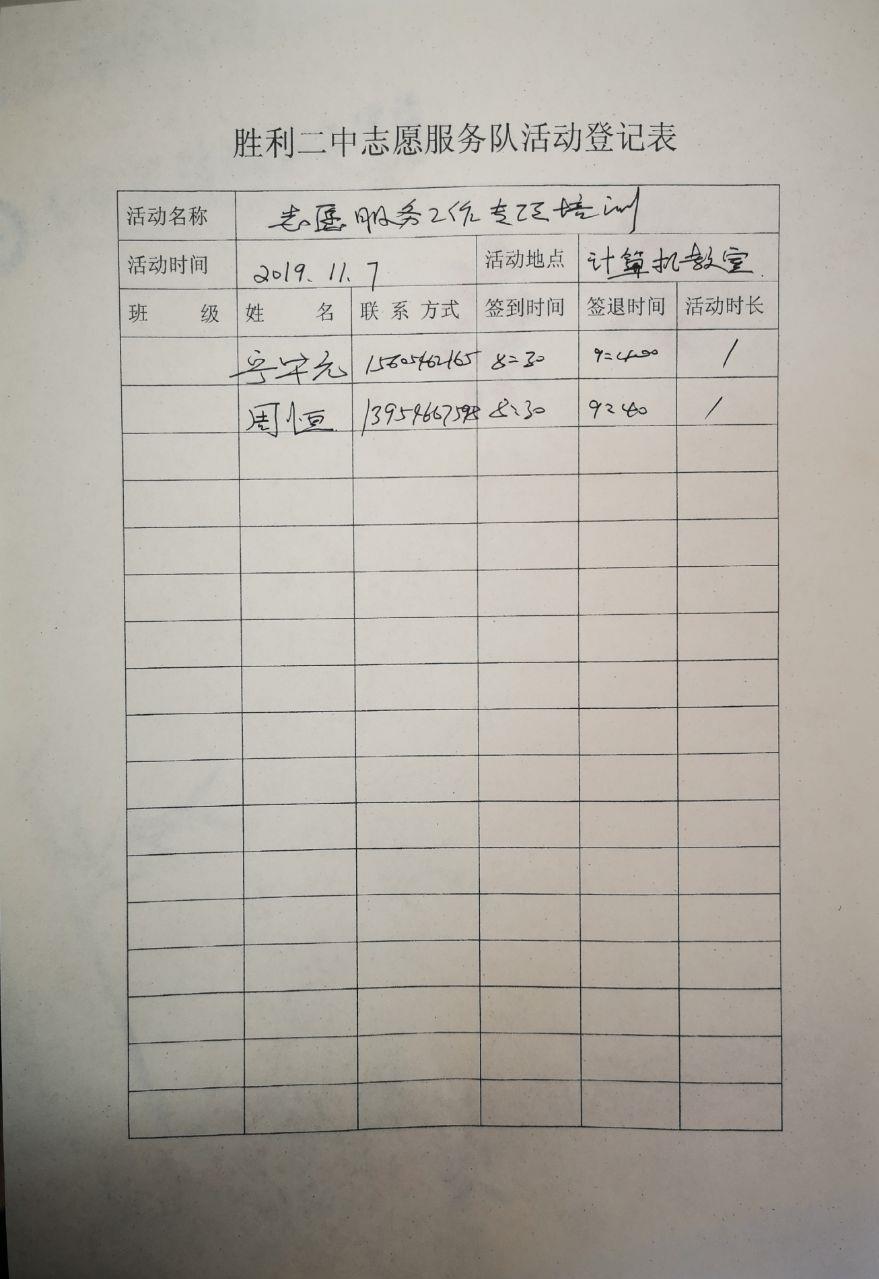 胜利二中志愿服务队活动登记表
活动名称 志愿服务工作专项培训
活动时间 2019.11.7 活动地点 计算机教室
班 级 姓 名 联系方式 签到时间 签退时间 活动时长
15605462165 8:30 /
周恒 8:30 9:40 /